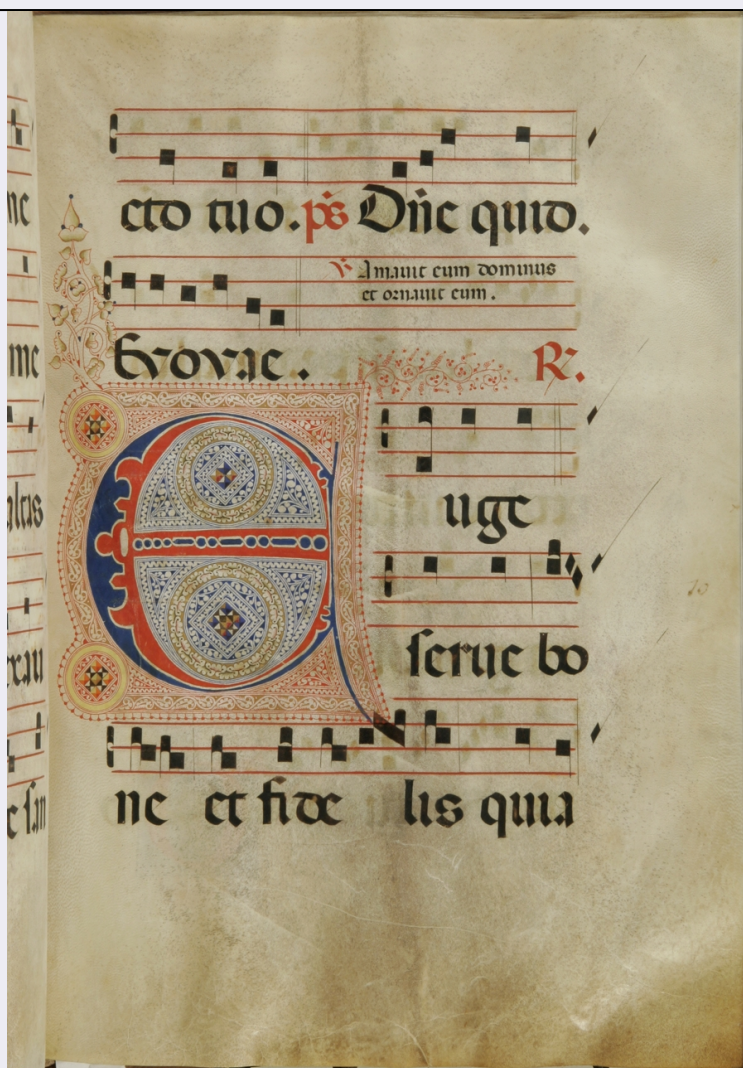 cto tuo. ps Dñe quid.
℣ Amauit eum dominus
et ornauit eum.
Evovae. ℟.
Euge
serue bo
ne et fide lis quia